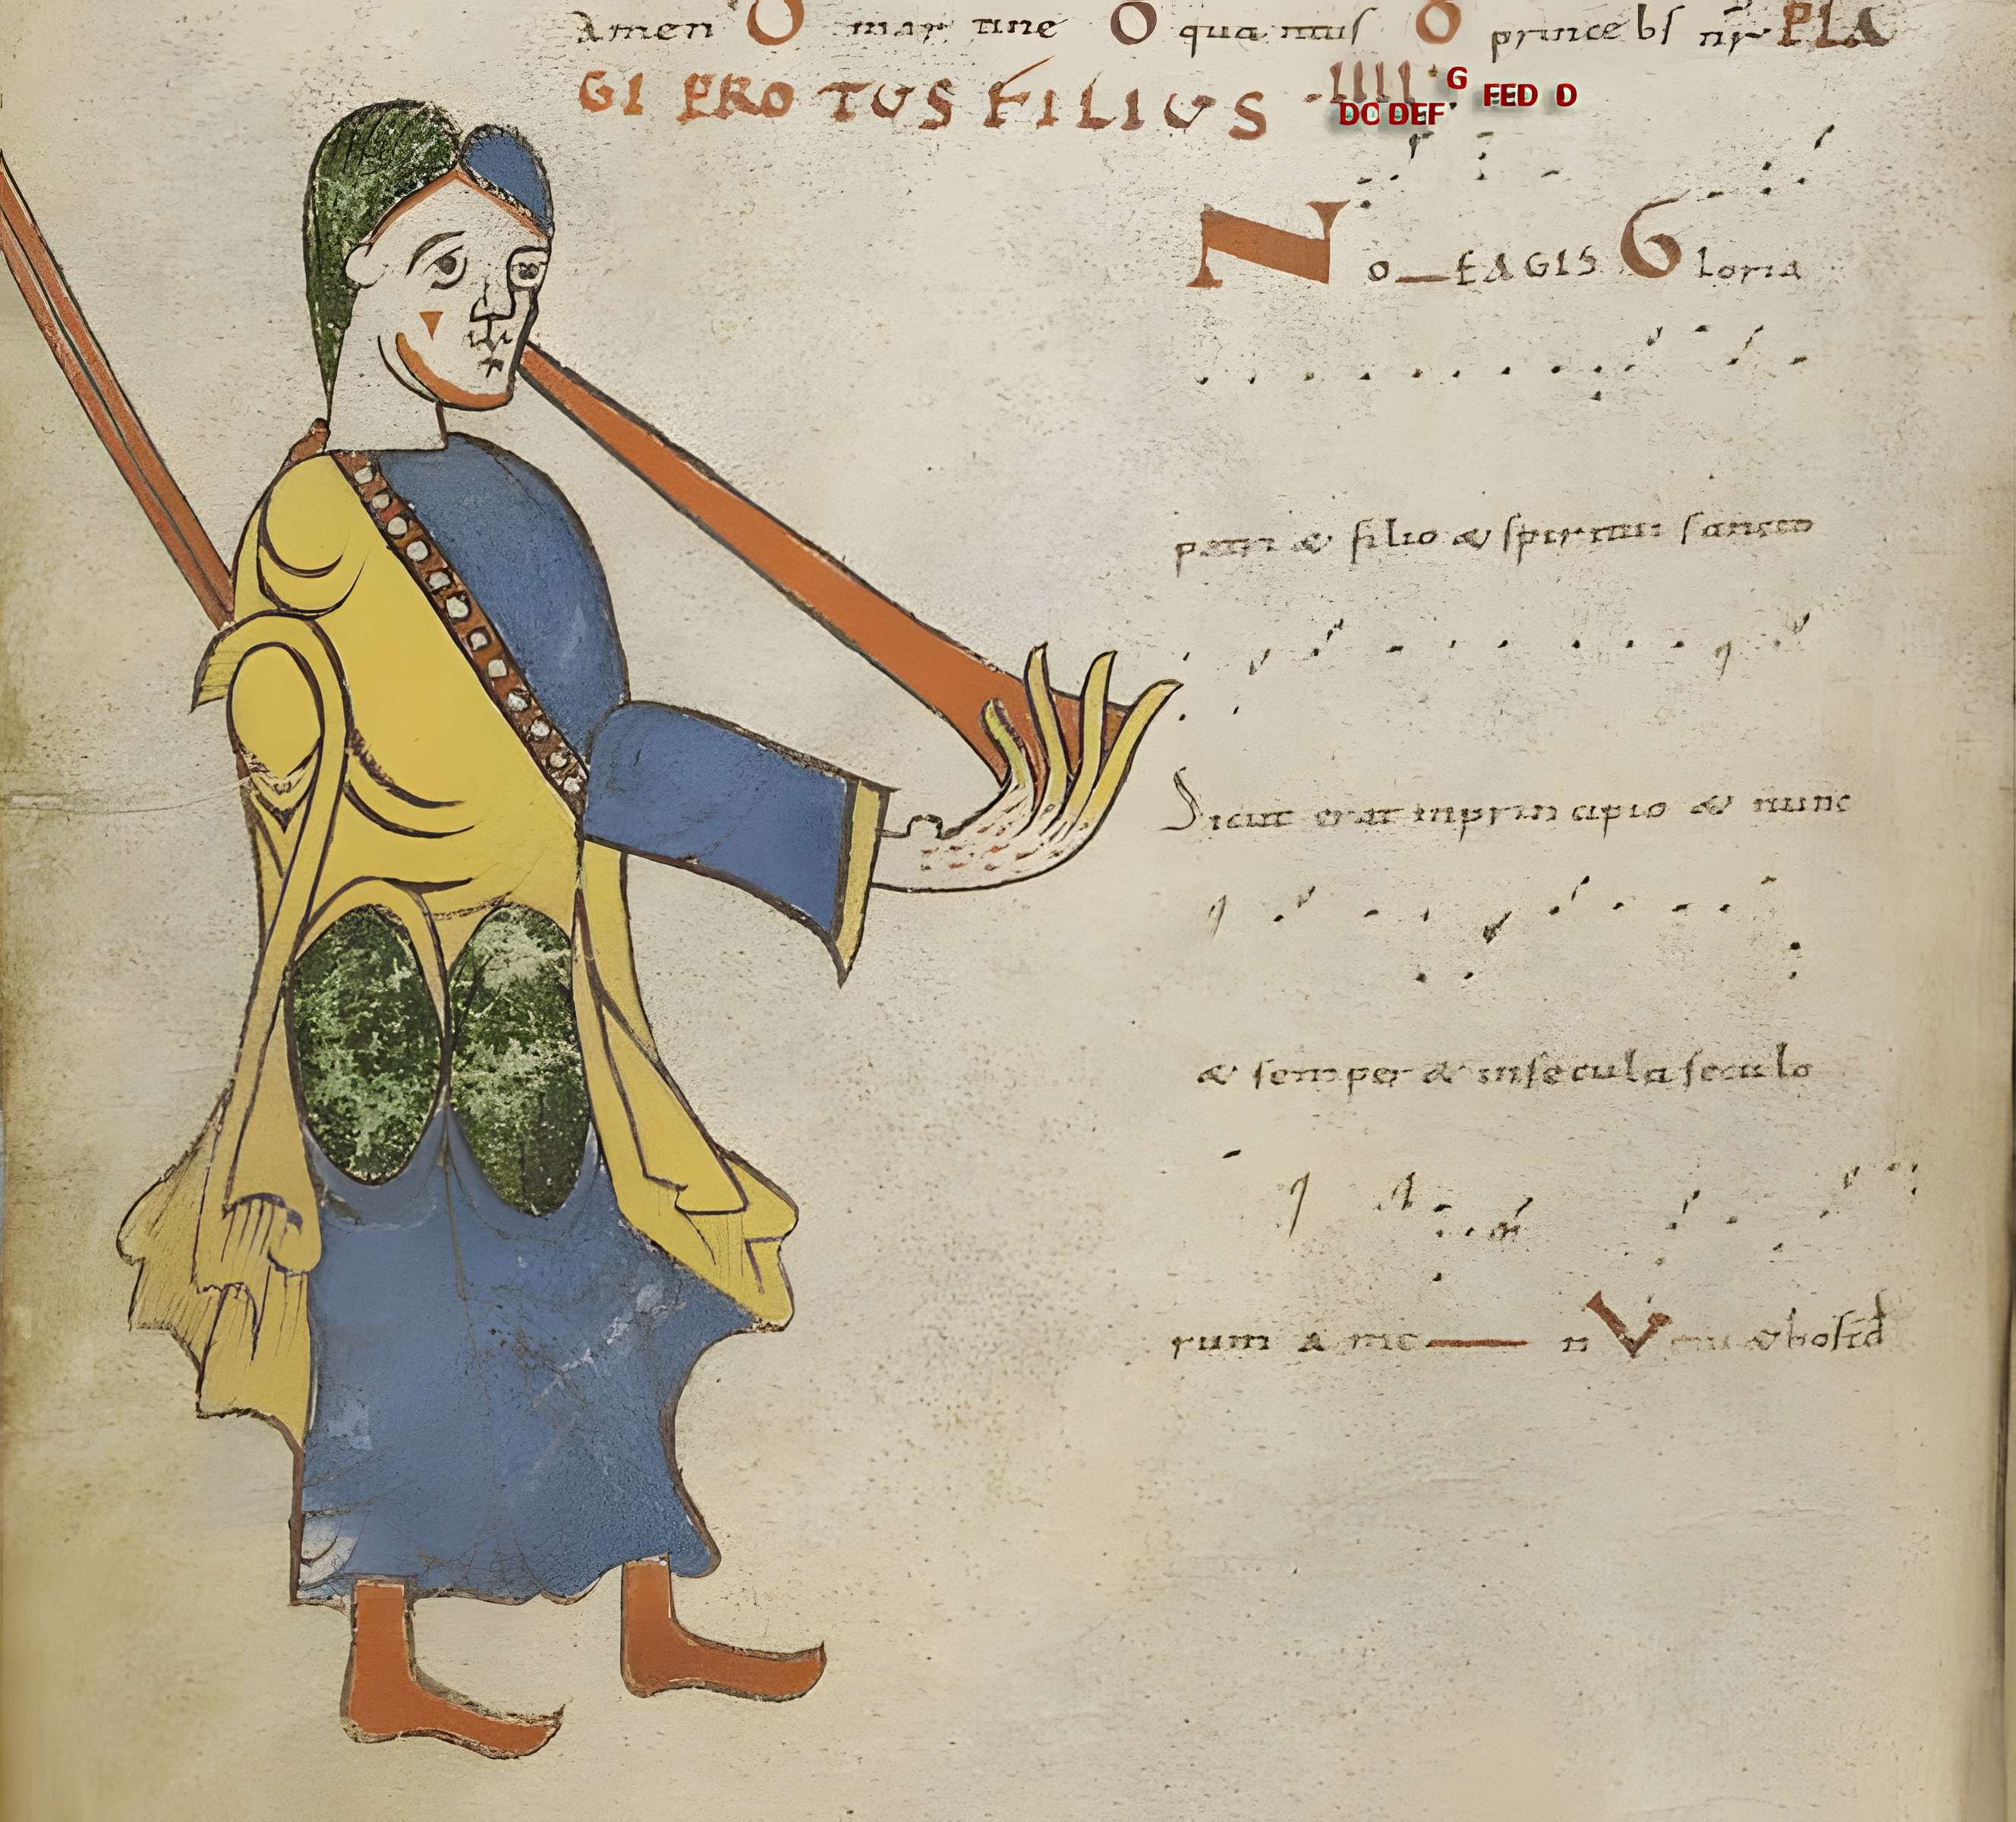 amen O mar tine O quantus O princebs nr PLA
GI PROTUS FILIUS IIII G FED D
DC DEF
No_EAGIS Gloria
patri & filio & spiritui sancto
Sicut erat inprin cipio & nunc
& semper & insecula seculo
rum a me n V &bost